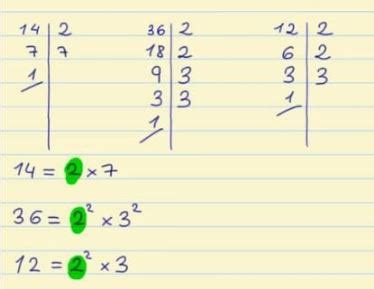 14 | 2
7 | 7
1
36 | 2
18 | 2
9 | 3
3 | 3
1
12 | 2
6 | 2
3 | 3
1
14 = 2 × 7
36 = 2² × 3²
12 = 2² × 3